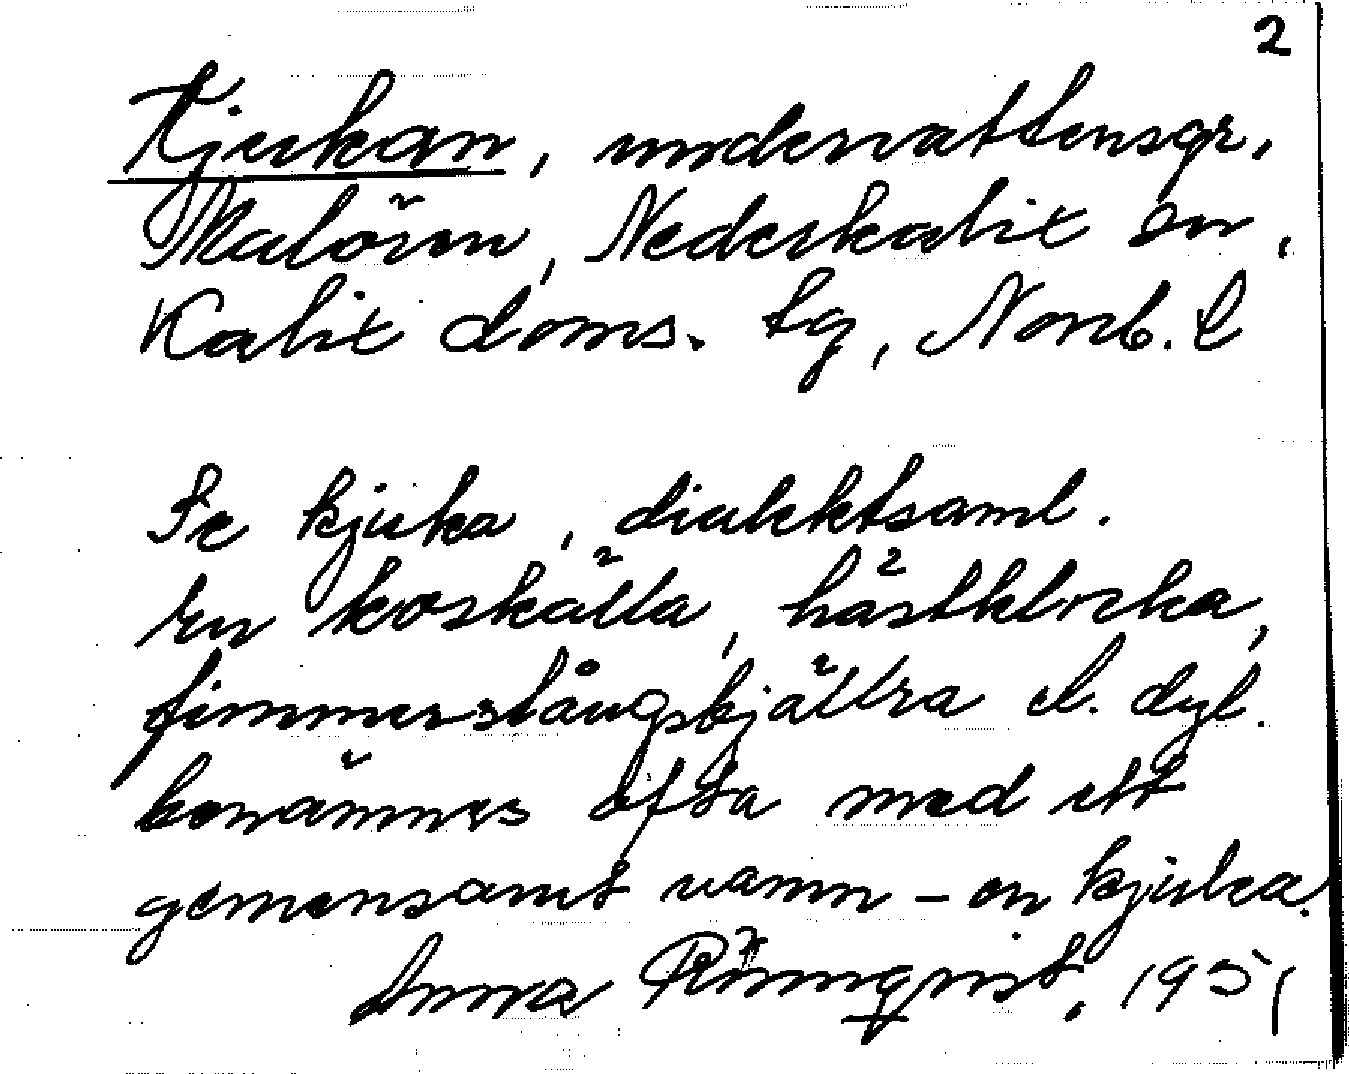 2
Kjukan, undervattensgr.
Malören, Nederkalix sn,
Kalix doms. tg, Norrb. l
Se kjuka, dialektsaml.
En koskälla, hästklocka,
fimmerstångskjällra el. dyl.
benämnes ofta med ett
gemensamt namn - en kjuka.
Anna Rönnqvist, 1951